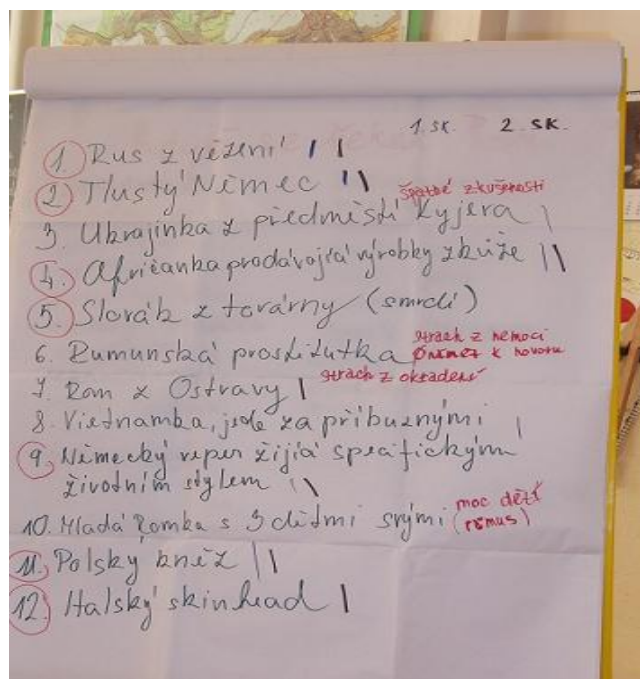 1. SK. 2. SK.
1. Rus z vězení | |
2. Tlustý Němec | \ \
špatné zkušenosti
3. Ukrajinka z předměstí Kyjeva |
4. Afričanka prodávající výrobky z kůže | \
5. Slovák z továrny (smrdí)
strach z nemocí
6. Rumunská prostitutka k hovoru
7. Rom z Ostravy | strach z okradení
8. Vietnamka, jede za příbuznými |
9. Německý reper žijící specifickým
životním stylem | \
moc dětí
10. Mladá Romka s 3 dětmi svými (rámus)
11. Polský kněz | |
12. Italský skinhead |